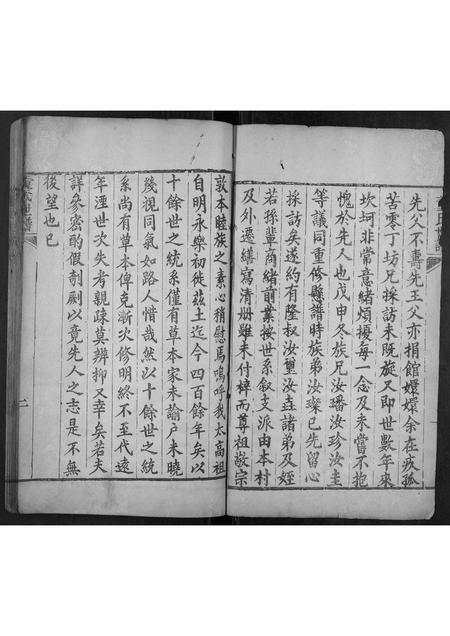 先父不祿先王父亦捐館嬛嬛余在疚孤
苦零丁坊兄採訪未既旋又即世數年來
坎坷非常意緒煩擾每一念及未嘗不抱
愧於先人也戊申冬族兄汝璠汝珍汝圭
等議同重修縣譜時族弟汝璨已先留心
採訪矣遂約有隆叔汝璽汝垚諸弟及姪
若孫輩商緒前業按世系叙支派由本村
及外遷繕寫清冊雖未付梓而尊祖敬宗
敦本睦族之素心稍慰焉嗚呼我太高祖
自明永樂初徙兹土迄今四百餘年矣以
十餘世之統系僅有草本家未諭戶未曉
幾視同氣如路人惜哉然以十餘世之統
系尚有草本俾克漸次修明終不至代遠
年湮世次失考親疎莫辨抑又幸矣若夫
詳參密酌假剞劂以竟先人之志是不無
後望也已
二